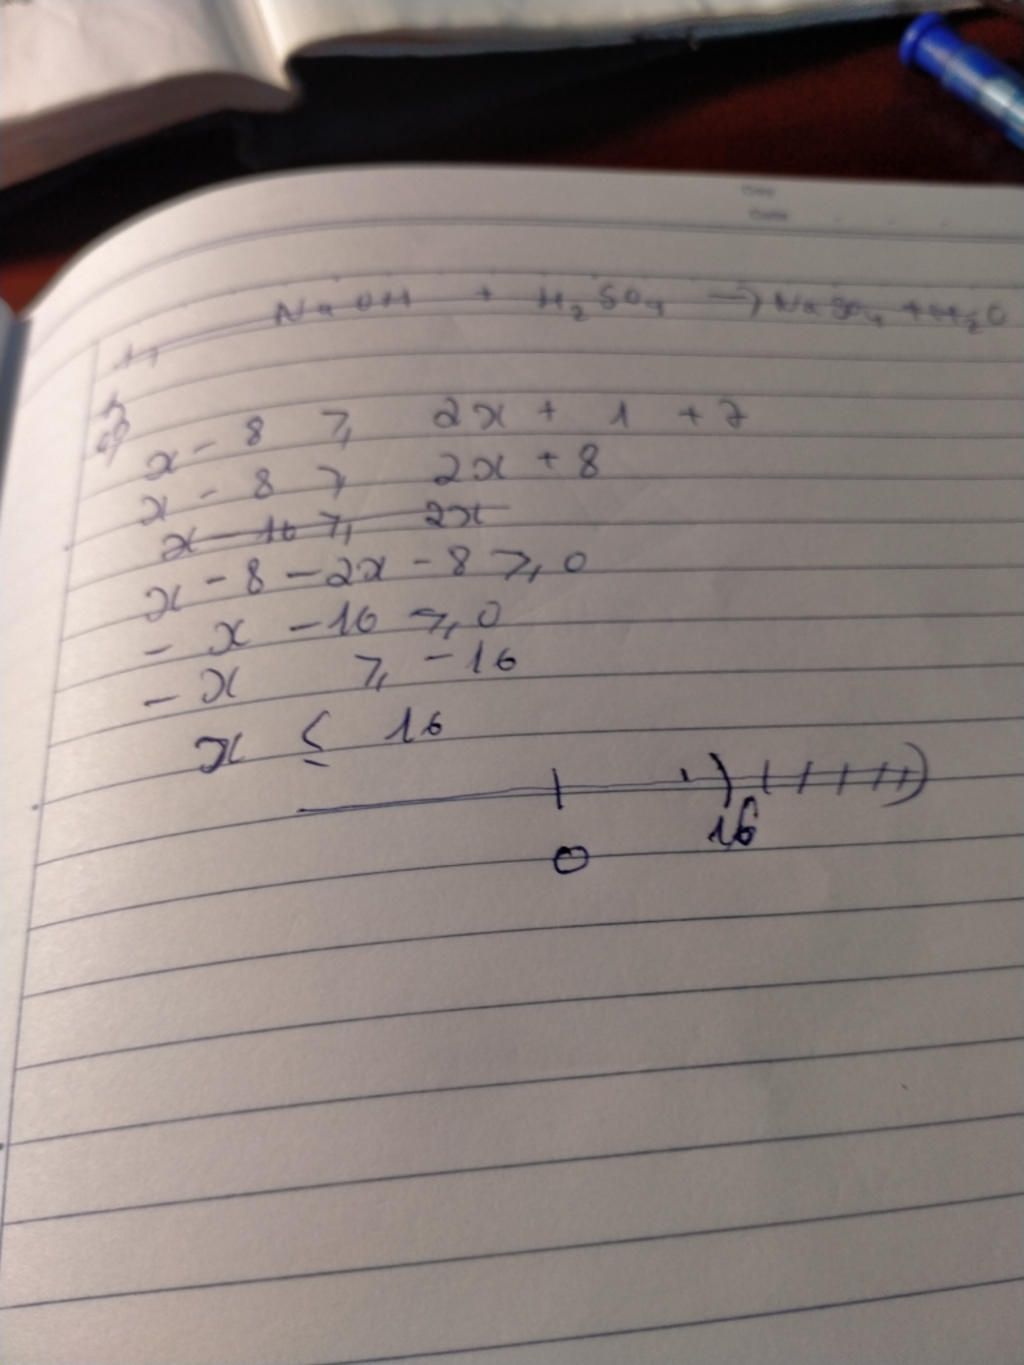 NaOH + H₂SO₄ → NaSO₄ + H₂O
1,
x - 8 ⩾ 2x + 1 + 7
x - 8 ⩾ 2x + 8
x - 16 ⩾ 2x
x - 8 - 2x - 8 ⩾ 0
- x - 16 ⩾ 0
- x ⩾ -16
x ≤ 16
16
0